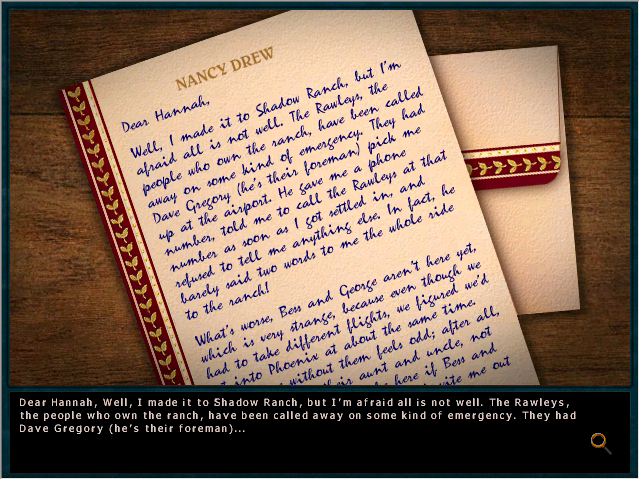 NANCY DREW
Dear Hannah,
Well, I made it to Shadow Ranch, but I'm
afraid all is not well. The Rawleys, the
people who own the ranch, have been called
away on some kind of emergency. They had
Dave Gregory (he's their foreman) pick me
up at the airport. He gave me a phone
number, told me to call the Rawleys at that
number as soon as I got settled in, and
refused to tell me anything else. In fact, he
barely said two words to me the whole ride
to the ranch!
What's worse, Bess and George aren't here yet,
which is very strange, because even though we
had to take different flights, we figured we'd
into Phoenix at about the same time.
without them feels odd; after all,
their aunt and uncle, not
here if Bess and
me out
Dear Hannah, Well, I made it to Shadow Ranch, but I'm afraid all is not well. The Rawleys,
the people who own the ranch, have been called away on some kind of emergency. They had
Dave Gregory (he's their foreman)...